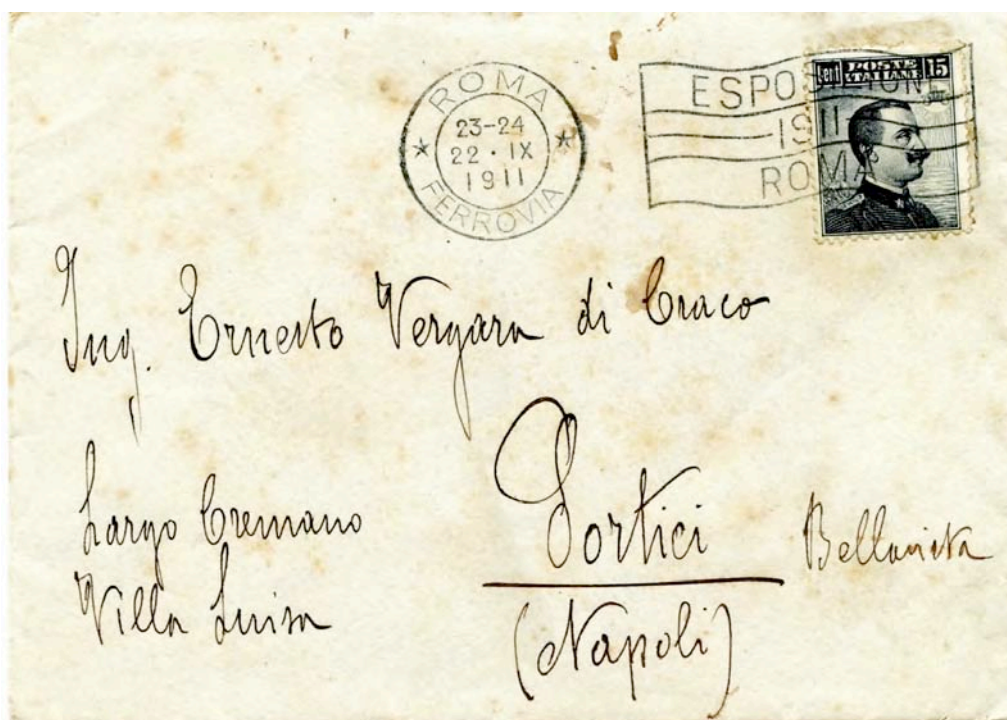 ROMA
23-24
22·IX
1911
FERROVIA
ESPOSIZIONE
1911
ROMA
Cent POSTE ITALIANE 15
Ing. Ernesto Vergara di Craco
Largo Cremano
Villa Luisa
Portici
Bellavista
(Napoli)